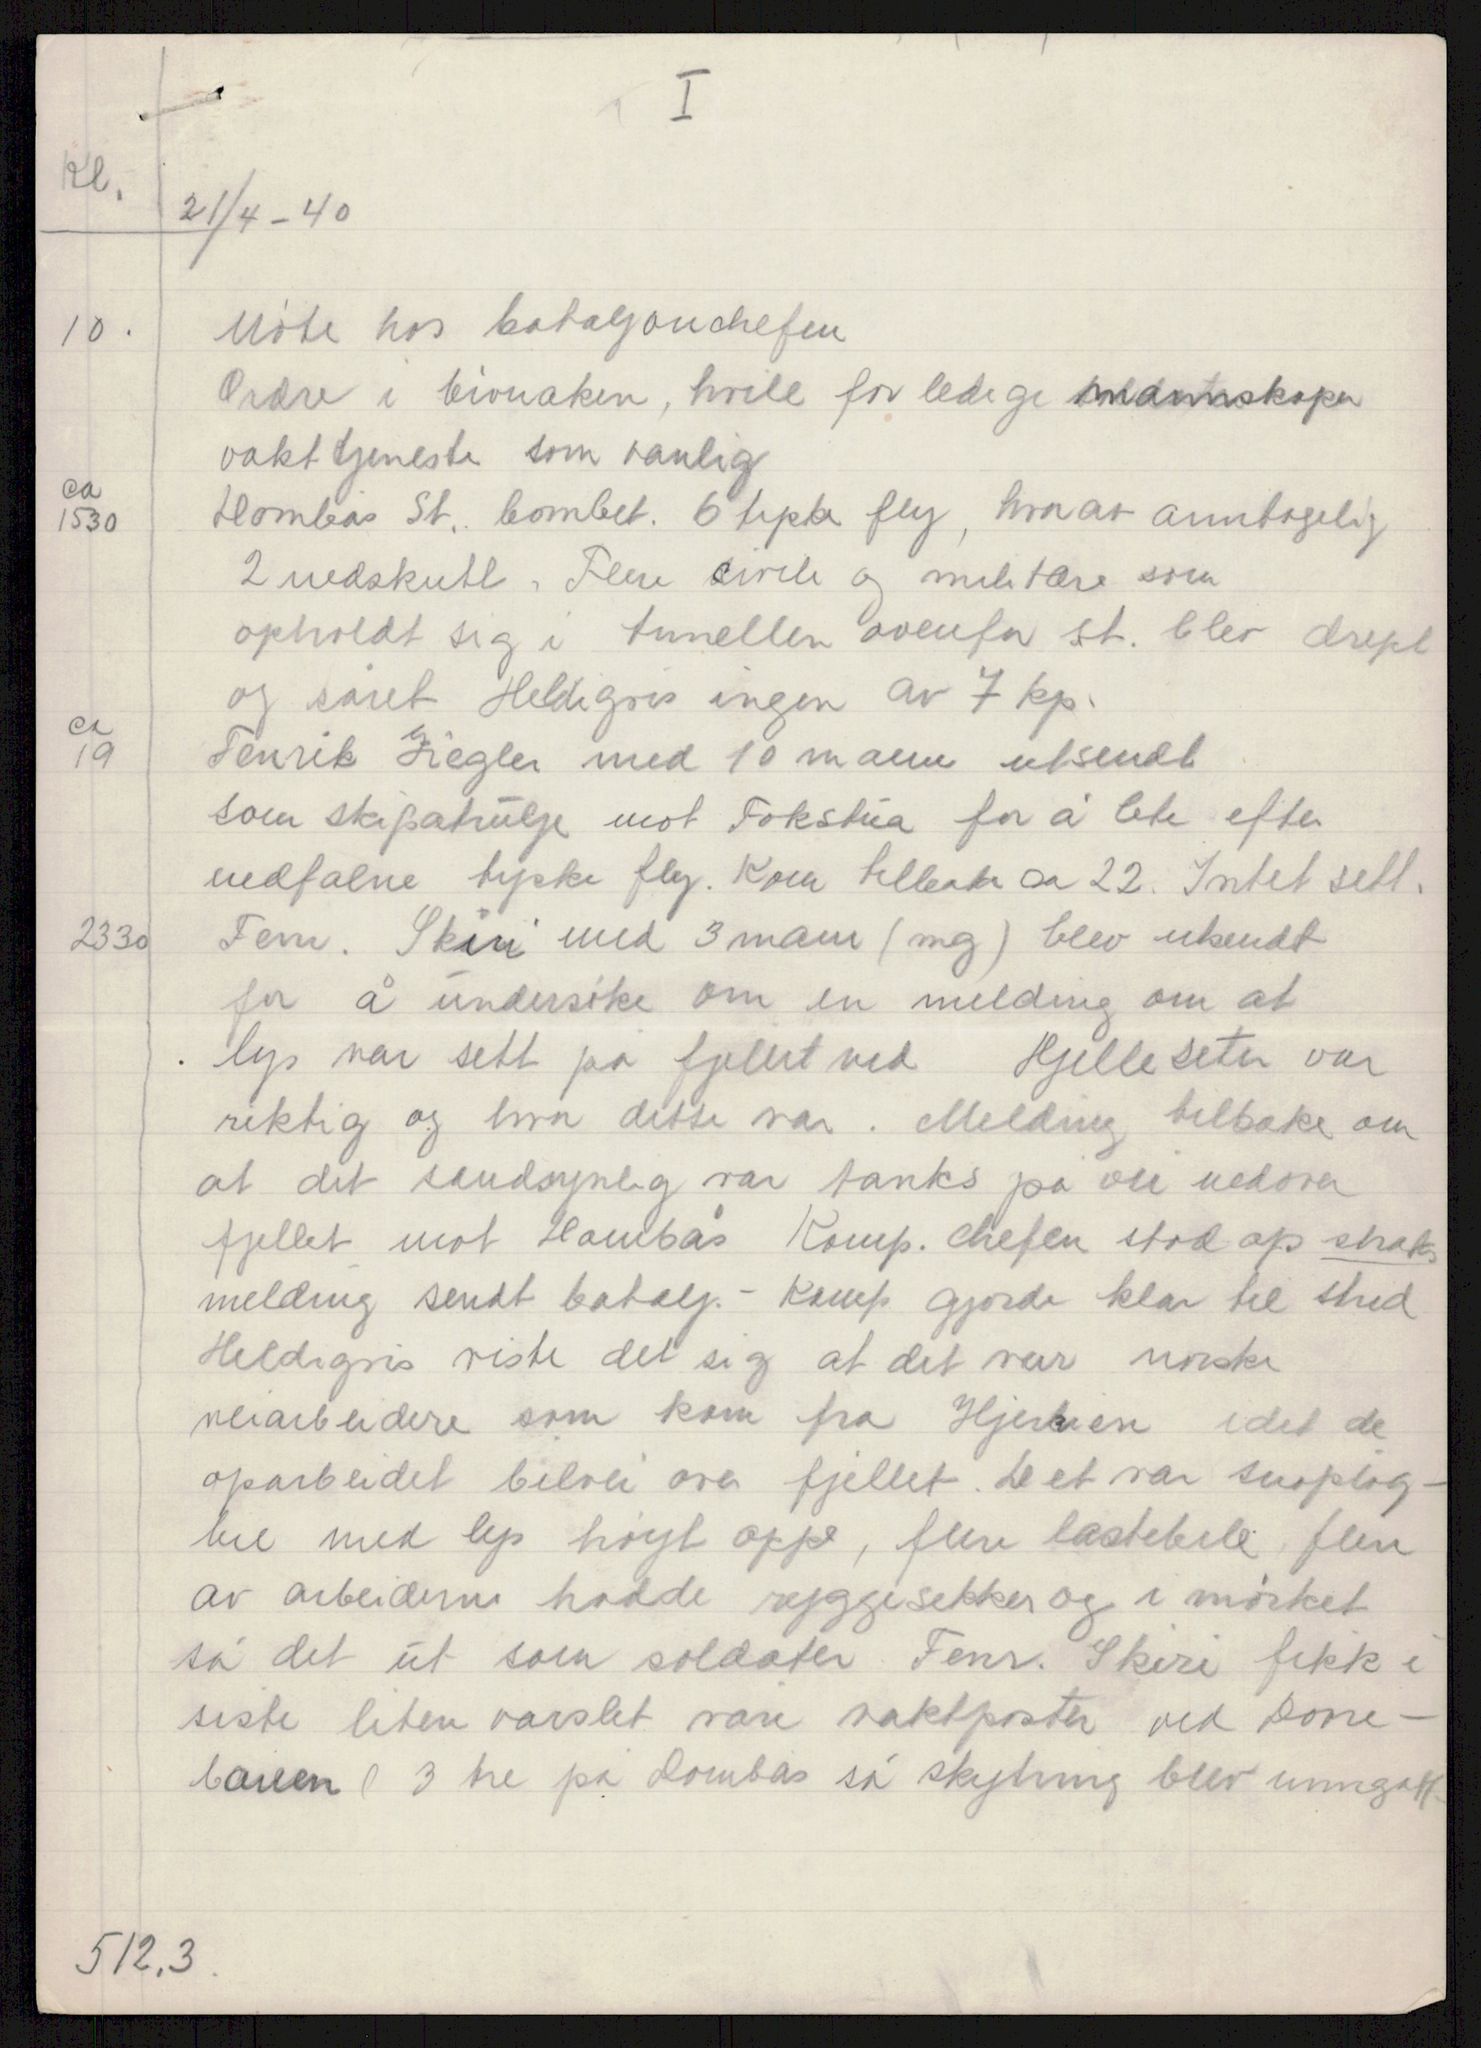 I
Kl.
21/4-40
10. Møte hos bataljonchefen
Ordre i bivuaken, hvile for ledige mannskaper
vakttjeneste som vanlig
ca 1530 Dombås St. bombet. 6 tyske fly, hvorav anntagelig
2 nedskutt. Flere civile og militære som
opholdt sig i tunellen ovenfor st. blev drept
og såret Heldigvis ingen av 7 kp.
ca 19 Fenrik Ziegler med 10 mann utsendt
som skipatrulje mot Fokstua for å lete efter
nedfalne tyske fly. Kom tilbake ca 22. Intet sett.
2330 Fenr. Skiri med 3 mann (mg) blev utsendt
for å undersøke om en melding om at
lys var sett på fjellet ved Hjelleseter var
riktig og hva dette var. Melding tilbake om
at det sandsynlig var tanks på vei nedover
fjellet mot Dombås Komp. chefen stod op straks
melding sendt batalj. - Komp gjorde klar til strid
Heldigvis viste det sig at det var norske
veiarbeidere som kom fra Hjerkinn idet de
oparbeidet bilvei over fjellet. Det var snøplog-
bil med lys høyt oppe, flere lastebile flere
av arbeiderne hadde ryggesekker og i mørket
så det ut som soldater Fenr. Skiri fikk i
siste liten varslet våre vaktposter ved Dovre-
banen (3 tre på Dombås så skytning blev unngått
512.3.